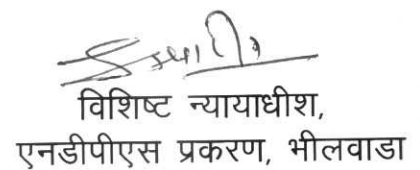 विशिष्ट न्यायाधीश,
एनडीपीएस प्रकरण, भीलवाडा